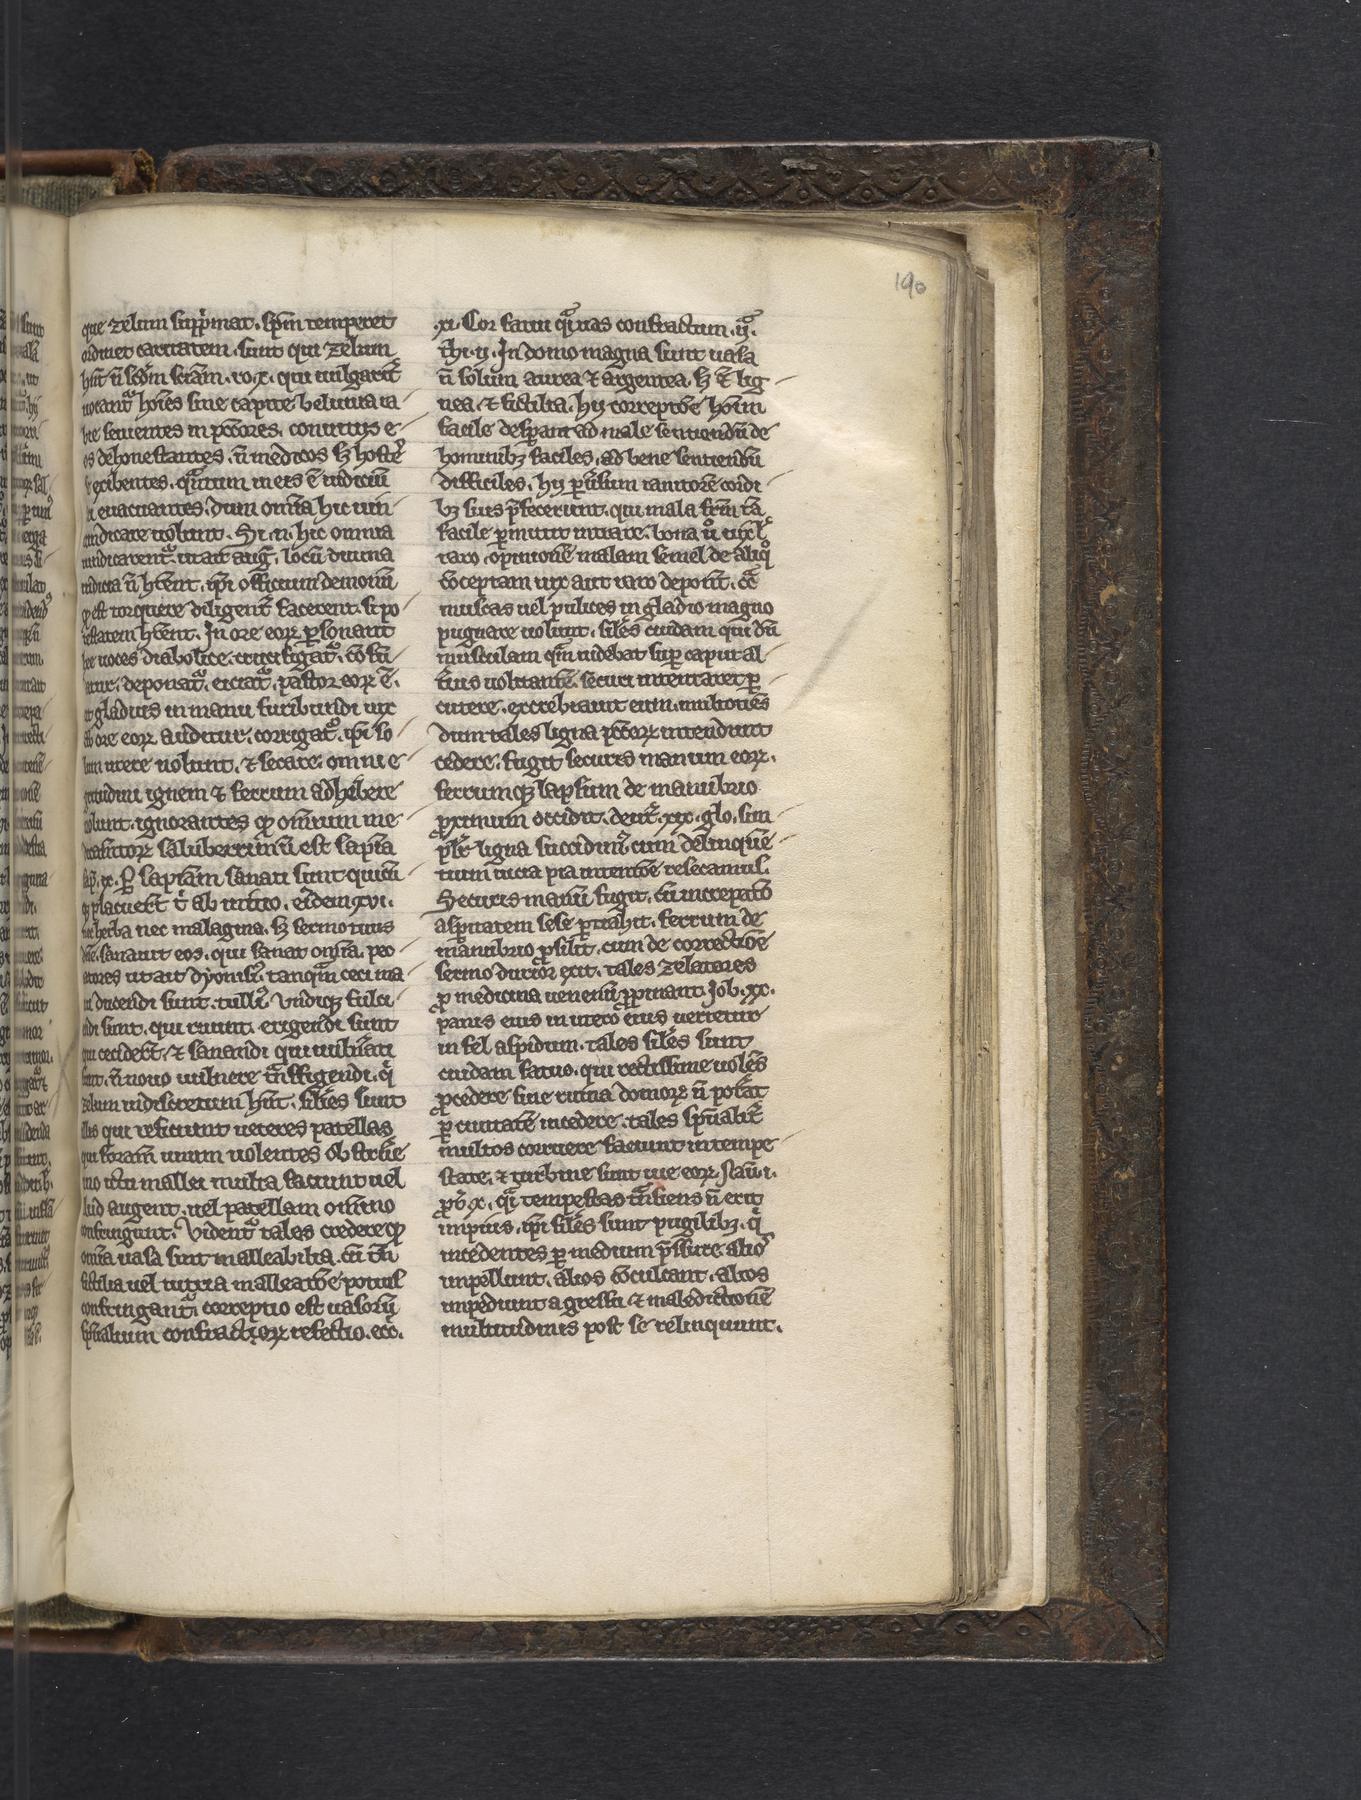 190
que zelum supp̃mat. sp̃m temperet
ordinet caritatem. sunt qui zelum
hñt ñ scđm sciam̃. ro. x. qui uulgarit̃
uocant̃ hoĩes sine capite belluina ra
bie seuientes in pctõres. conuitiis e
os dehonestantes. ñ medicos sꝫ hoste᷒
exibentes. qñtum in eis ẽ iudiciũ
euacuantes. dum om̃ia hic uin
dicare uolunt. Si .n. hic omnia
uindicarent̃. ut ait aug̃. locũ diuina
iudicia ñ hẽrent. ip̃i officium demonũ
qđ est torquere diligent̃ facerent. si po
testatem hẽrent. In ore eoꝝ ꝑsonant
hee uoces diabolice. crucifigat̃. cõfũ
datur. deponat̃. eiciat̃. pastor eoꝝ ẽ.
ut gladius in manu furibundi uix
ab ore eoꝝ auditur. corrigat̃. ip̃i so
lum urere uolunt. ⁊ secare. omni e
gritudini ignem ⁊ ferrum adhibere
uolunt. ignorantes qđ om̃ium me
dicam̃toꝝ saluberrimũ est sapĩa
sap̃. ix. ꝑ sapĩam sanati sunt quicũ
qꝫ placuert̃ t̃ ab initio. eiusdem xvi.
ne herba nec malagma. sꝫ sermo tuus
dñe. sanauit eos. qui sanat om̃ia. pec
catores ut ait dyonisi᷒. tanq̃m ceci ma
nu ducendi sunt. tulli᷒. Vndiqꝫ fulci
endi sunt. qui ruunt. erigendi sunt
qui cecidert̃. ⁊ sanandi qui uulnĩati
sunt. ñ nouo uulnere t̃nsfigendi. q̃
zelum indiscretum hñt. sil̃es sunt
illis qui reficiunt ueteres patellas
qui foram̃ unum uolentes obstrũe
uno ictu mallei multa faciunt uel
illud augent. uel patellam om̃ino
confringunt. Vident̃ tales credere qđ
om̃ia uasa sint malleabilia. cũ tñ
fictilia uel uitrea malleatiõe poti᷒
confringant̃. correptio est uasoꝝ
sp̃ualium confractoꝝ refectio. ecc̃.
.xi. Cor fatui q̃i uas confractum. ij᷒.
thi. ij. In domo magna sunt uasa
ñ solum aurea ⁊ argentea. sꝫ ⁊ lig
nea. ⁊ fictilia. hij correptiõe hoĩm
facile desperant ad male sentiendũ de
hominibꝫ faciles. ad bene sentiendũ
difficiles. hij ꝑuersum ianitorẽ cordi
bꝫ suis p̃fecerunt. qui mala
facile ꝑmittit intrare. bona ũ
raro. opinionẽ malam semel de aliq̃
cõceptam uix aut raro deponit.
muscas uel pulices in gladio magno
pugnare uolunt. sil̃es cuidam qui dũ
musculam quam uidebat sup̃ caput al
terius uolitantẽ. securi intentaret ꝑ
cutere. excerebrauit eum. multociẽs
dum tales ligna pctõrꝝ intendunt
cedere. fugit securis manum eoꝝ.
ferrumqꝫ lapsum de manubrio
proximum occidit. deut̃. xix. glo. sim
plr̃ ligna succidim᷒ cum delinquẽ
tium uicia pia intentiõe resecamus.
Securis manũ fugit. cũ increpatio
asperitatem sese pertrahit. ferrum de
manubrio prosilit. cum de correctiõe
sermo durior exit. tales zelatores
pro medicina uenenũ propinant. Job. xx.
panis eius in utero eius uertetur
in fel aspidum. tales sil̃es sunt
cuidam fatuo. qui rectissime uolẽs
procedere sine ruina domorꝝ ñ poterat
per ciuitatẽ incedere. tales sp̃ualit̃
multos corruere faciunt in tempe
state. ⁊ turbine sunt uie eorꝝ. Naũ. i.
pro᷒. x. q̃i tempestas t̃nsiens ñ erit
impius. ip̃i sil̃es sunt pugilibꝫ. q̃
incedentes ꝑ medium p̃ssure. alios
impellunt. alios cõculcant. alios
impediunt a gressu. ⁊ maledictionẽ
multitudinis post se relinquunt.